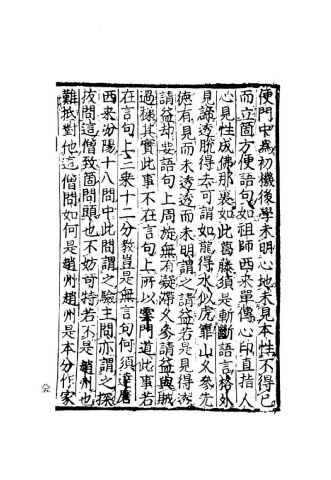 便門中為初機後學未明心地未見本性不得已
而立箇方便語句如祖師西來單傳心印直指人
心見性成佛那裏如此葛藤須是斬斷語言格外
見諦透脫得去可謂如龍得水似虎靠山久參先
德有見而未透透而未明謂之請益若是見得透
請益却要語句上周旋無有凝滯久參請益與賊
過梯其實此事不在言句上所以雲門道此事若
在言句上三乘十二分教豈是無言句何須達磨
西來汾陽十八問中此問謂之驗主問亦謂之探
拔問這僧致箇問頭也不妨奇特若不是趙州也
難抵對他這僧問如何是趙州趙州是本分作家